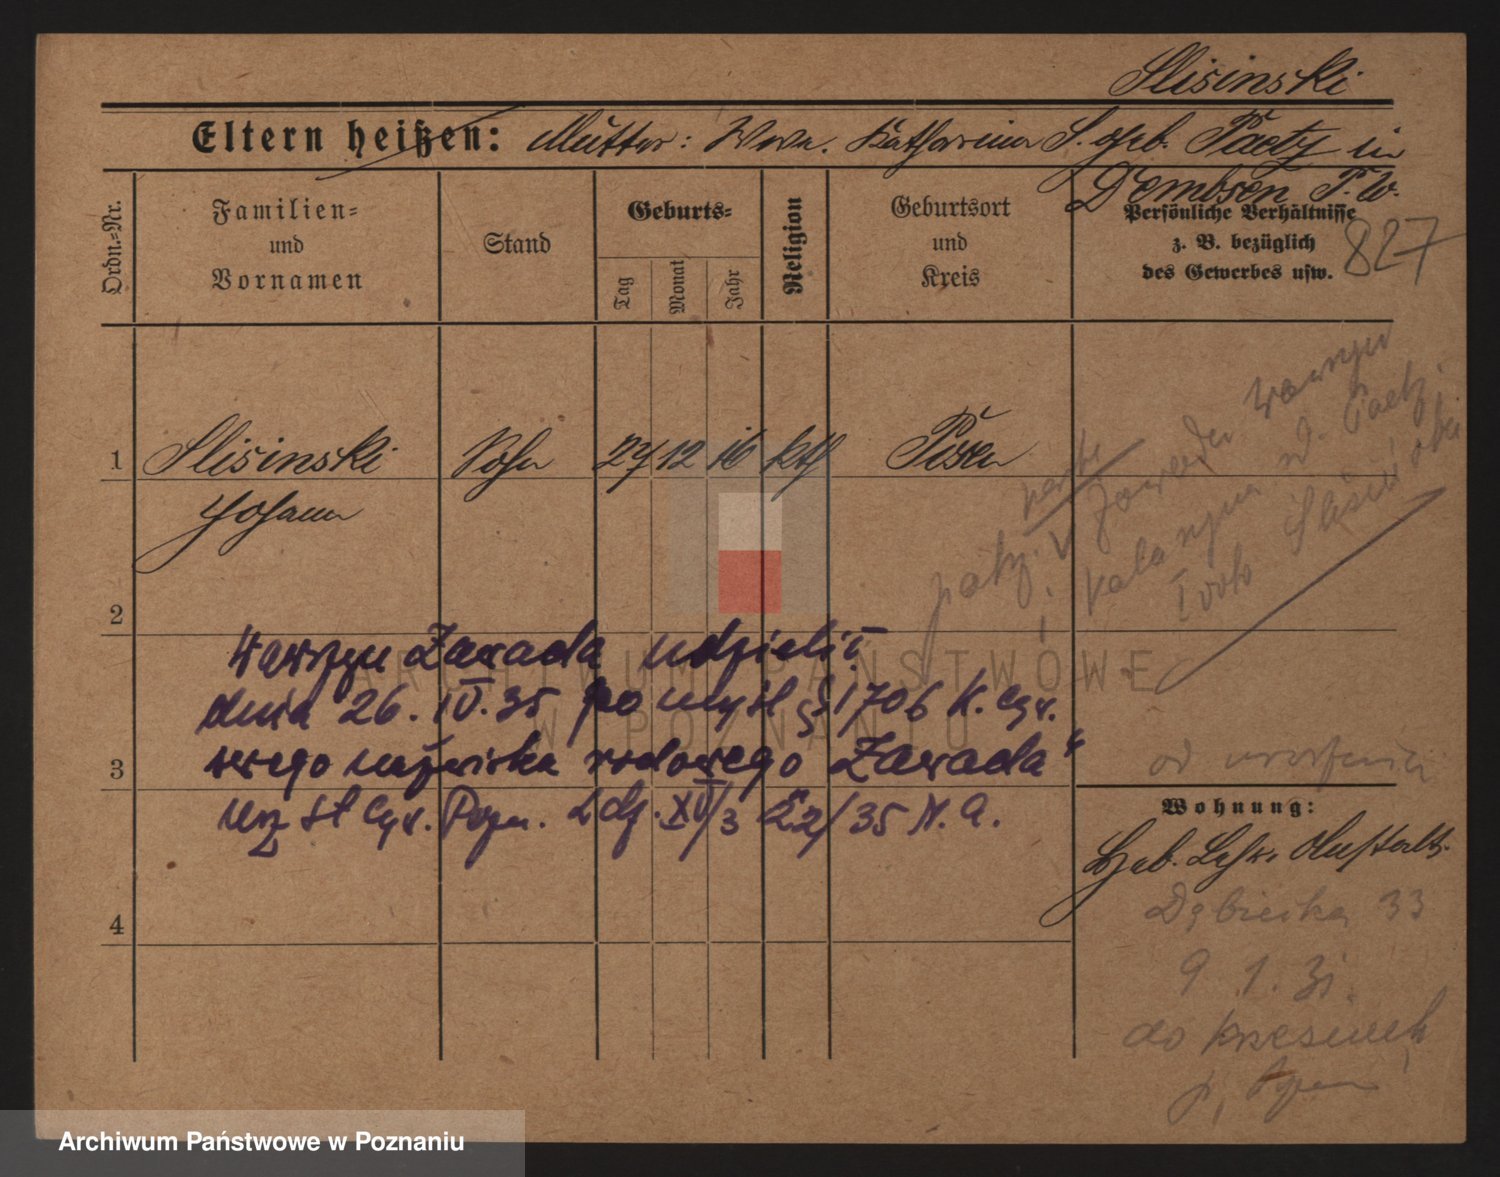 Slisinski
Eltern heißen: Mutter: Wwe. Katharina S. geb. Paetz in
Dembsen P. W.
Ordn.-Nr.
Familien-
und
Vornamen
Stand
Geburts-
Tag
Monat
Jahr
Religion
Geburtsort
und
Kreis
Persönliche Verhältnisse
z. B. bezüglich
des Gewerbes usw.
827
1 Slisinski Sohn 27 12 16 kth Posen
Johann
patrz.
Zawada Wawrzyn
i Katarzyna d. Paetz
Ivoto
2
Wawrzyn Zawada udzielił
dnia 26. IV. 35 po myśl § 1706 K. Cyw.
swego nazwiska rodowego Zawada"
3
Urz St Cyw. Pozn. Ldz. XV/3 22/35 N. A.
od urodzenia
Wohnung:
Heb. Lehr Anstalt.
Dąbiecka 33
4
9. 1. 31.
do Krzesinek
p,
ARCHIWUM PAŃSTWOWE
W POZNANIU
Archiwum Państwowe w Poznaniu